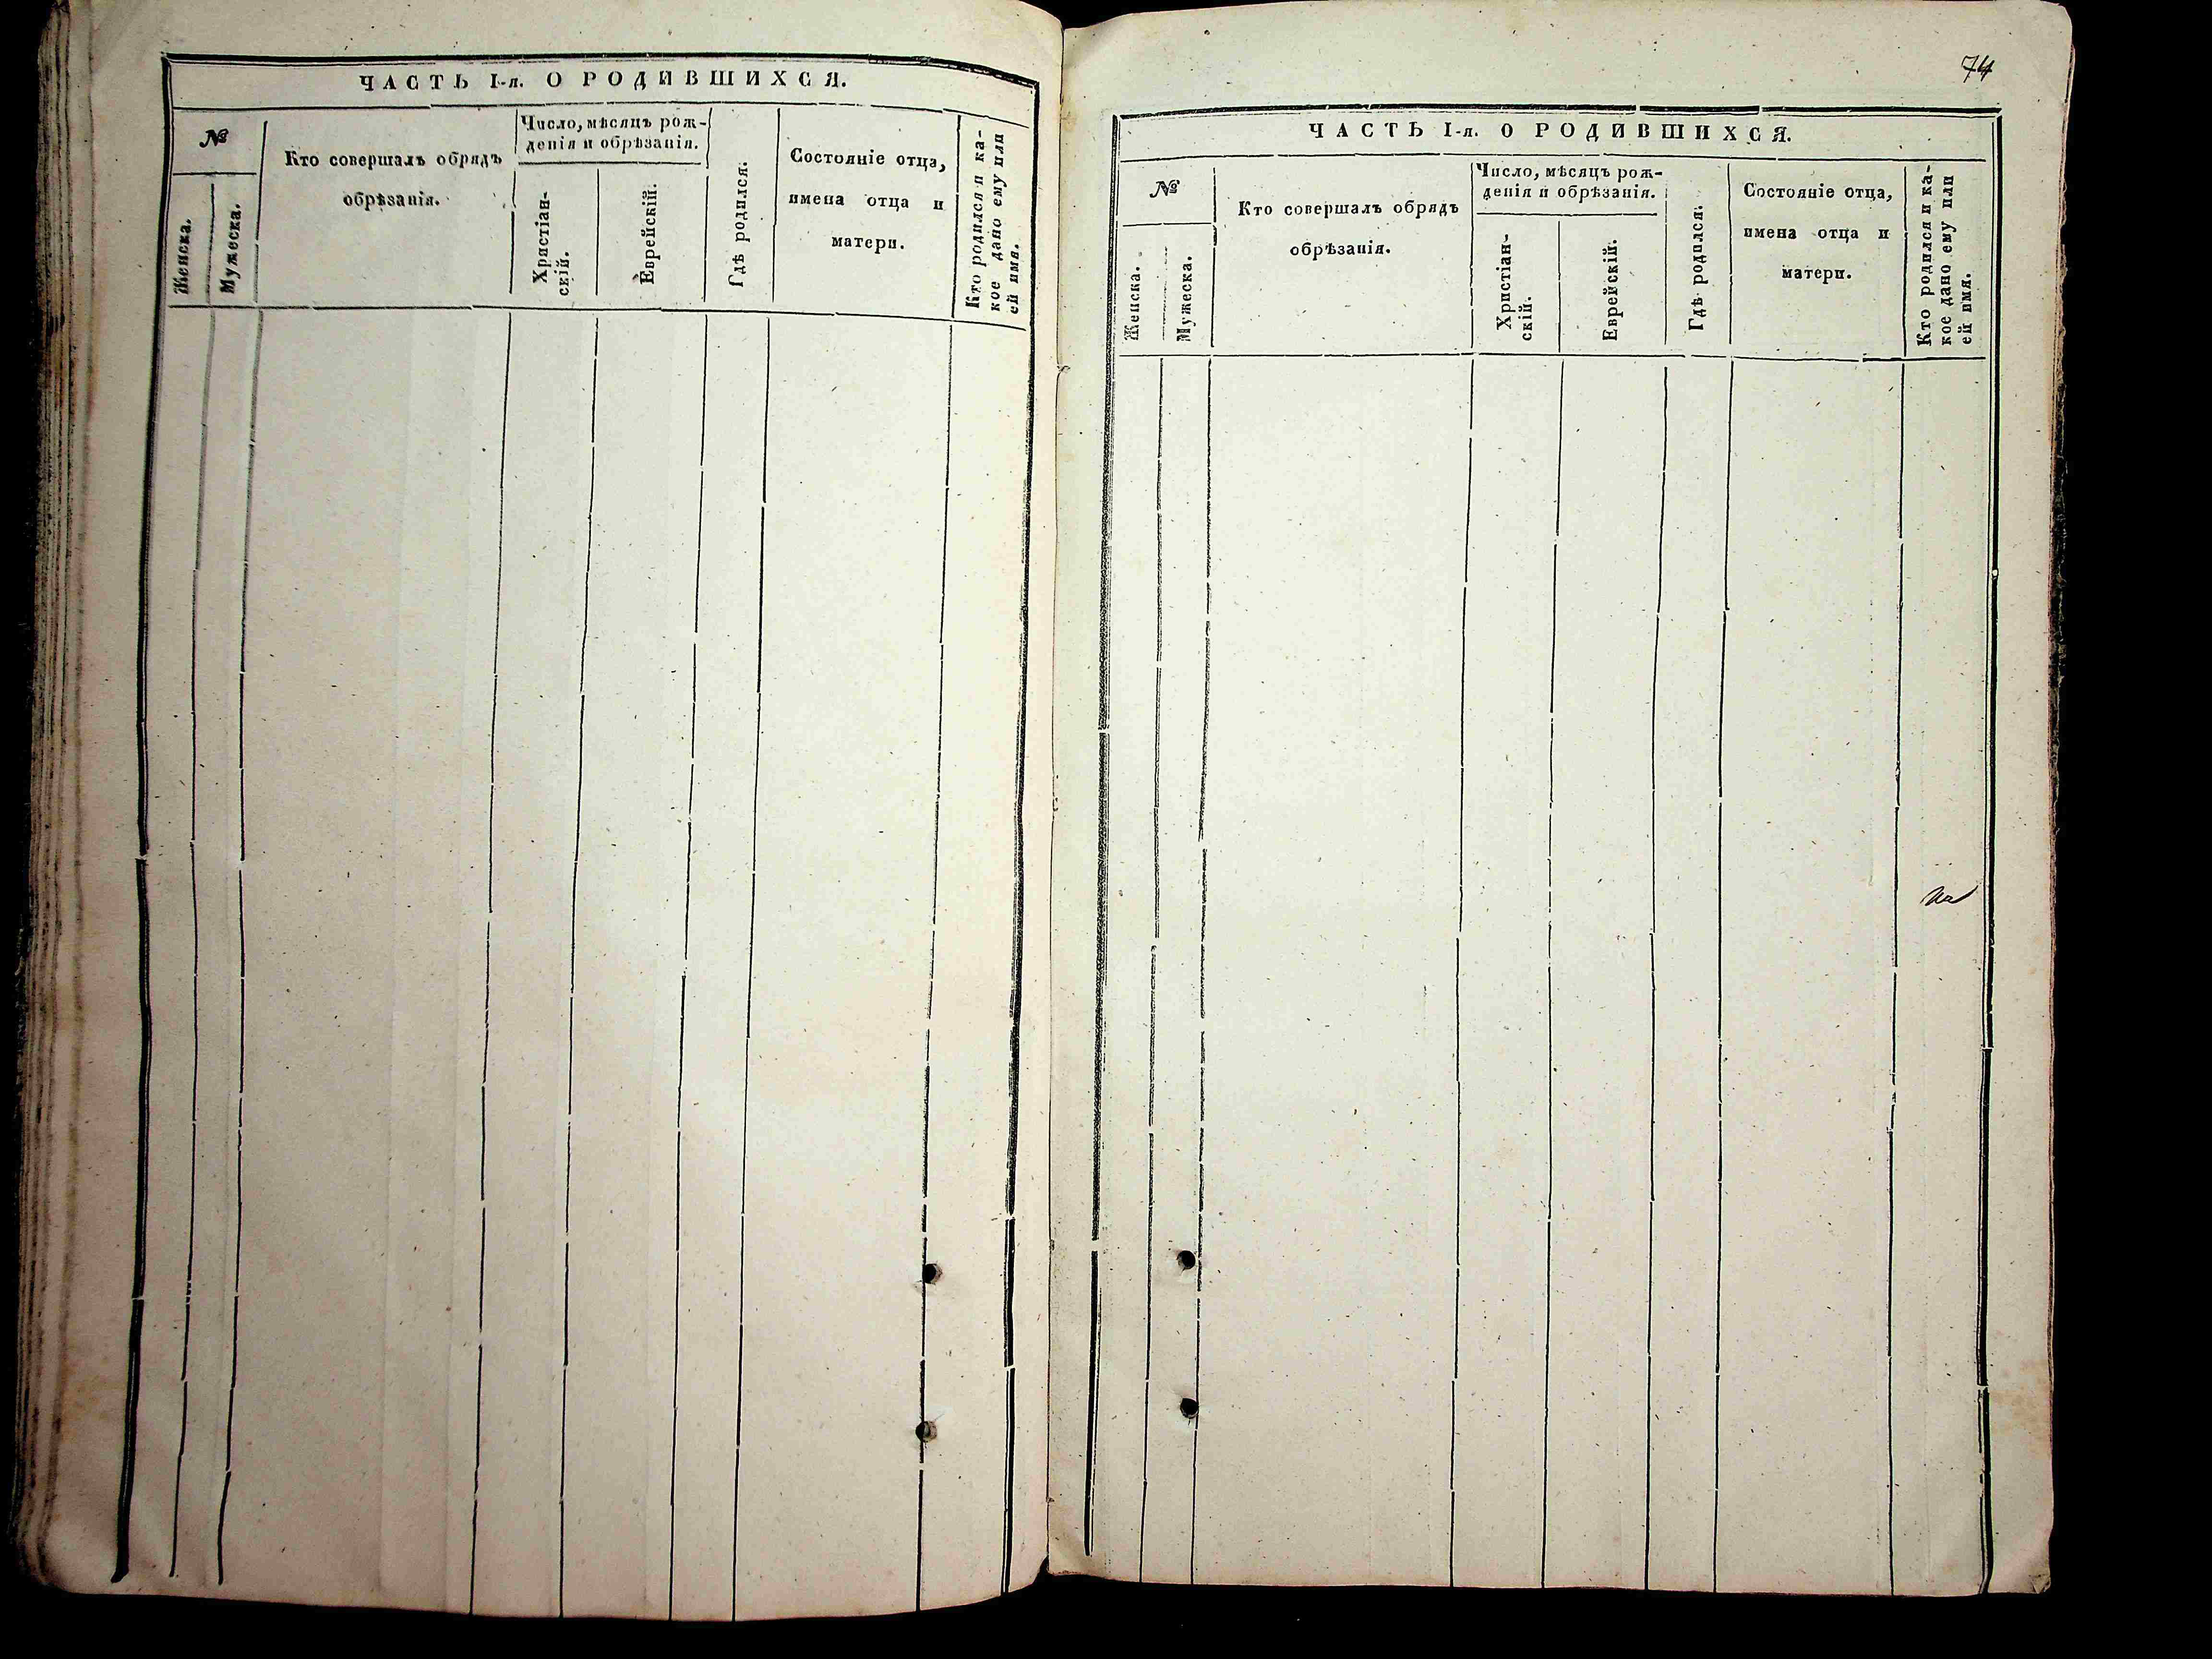 ЧАСТЬ I-я. О РОДИВШИХСЯ.
№
Женска.
Мужеска.
Кто совершалъ обрядъ
обрѣзанія.
Число, мѣсяцъ рож-
денія и обрѣзанія.
Христіан-
скій.
Еврейскій.
Гдѣ родился.
Состояніе отца,
имена отца и
матери.
Кто родился и ка-
кое дано ему или
ей имя.
74
ЧАСТЬ I-я. О РОДИВШИХСЯ.
№
Женска.
Мужеска.
Кто совершалъ обрядъ
обрѣзанія.
Число, мѣсяцъ рож-
денія и обрѣзанія.
Христіан-
скій.
Еврейскій.
Гдѣ родился.
Состояніе отца,
имена отца и
матери.
Кто родился и ка-
кое дано ему или
ей имя.